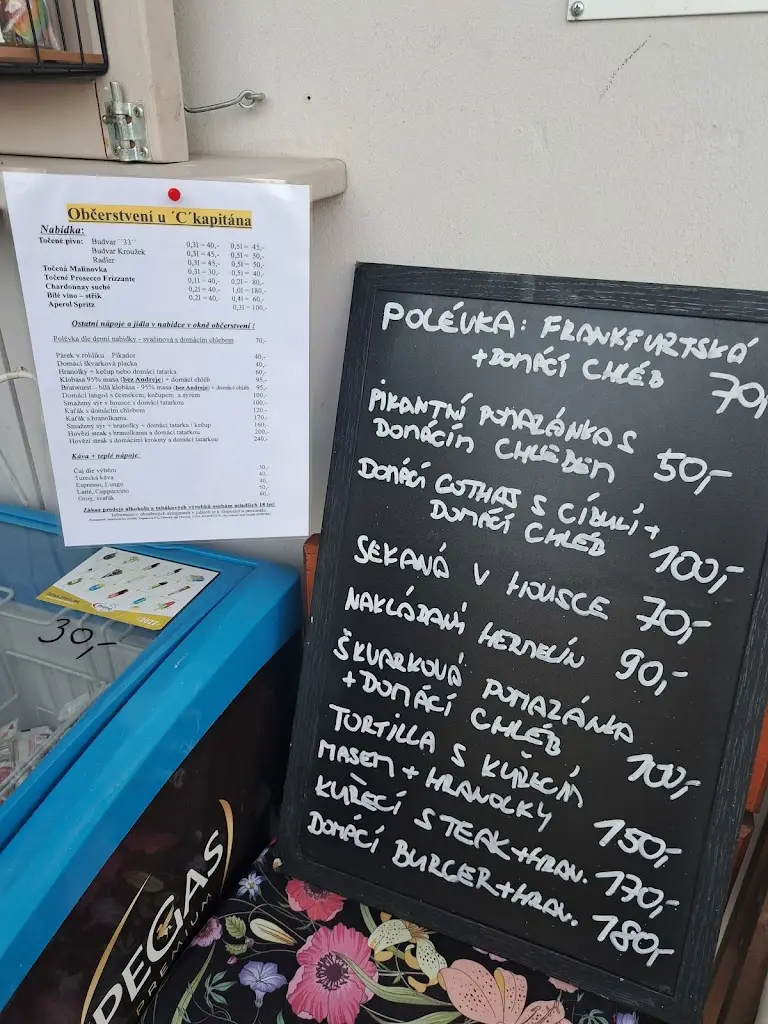 Občerstvení u ´C´kapitána
Nabídka:
Točené pivo: Budvar ´´33´´ 0,3l = 40,- 0,5l = 45,-
Budvar Kroužek 0,3l = 45,- 0,5l = 50,-
Radler 0,3l = 45,- 0,5l = 50,-
Točená Malinovka 0,3l = 30,- 0,5l = 40,-
Točené Prosecco Frizzante 0,1l = 40,- 0,2l = 80,-
Chardonnay suché 0,2l = 40,- 1,0l = 180,-
Bílé víno – střik 0,2l = 40,- 0,4l = 60,-
Aperol Spritz 0,3l = 100,-
Ostatní nápoje a jídla v nabídce v okně občerstvení !
Polévka dle denní nabídky - svačinová s domácím chlebem 70,-
Párek v rohlíku – Pikador 40,-
Domácí škvarková placka 40,-
Hranolky + kečup nebo domácí tatarka 60,-
Klobása 95% masa (bez Andreje) + domácí chléb 95,-
Bratwurst – bílá klobása - 95% masa (bez Andreje) + domácí chléb 95,-
Domácí langoš s česnekem, kečupem, a sýrem 100,-
Smažený sýr v housce s domácí tatarkou 100,-
Kuřák s domácím chlebem 120,-
Kuřák s hranolkama 170,-
Smažený sýr + hranolky + domácí tatarka / kečup 160,-
Hovězí steak s hranolkama a domácí tatarkou 200,-
Hovězí steak s domácími krokety a domácí tatarkou 240,-
Káva + teplé nápoje:
Čaj dle výběru 30,-
Turecká káva 40,-
Espresso, Lungo 40,-
Latté, Cappuccino 50,-
Grog, svařák 60,-
Zákaz prodeje alkoholu a tabákových výrobků osobám mladších 18 let!
30,-
2021
PEGAS
PREMIUM
POLÉVKA: FRANKFURTSKÁ
+DOMÁCÍ CHLÉB 70,-
PIKANTNÍ POMAZÁNKA S
DOMÁCÍM CHLEBEM 50,-
DOMÁCÍ GOTHAJ S CIBULÍ +
DOMÁCÍ CHLEB 100,-
SEKANÁ V HOUSCE 70,-
NAKLÁDANÝ HERMELÍN 90,-
ŠKVARKOVÁ POMAZÁNKA
+DOMÁCÍ CHLÉB 100,-
TORTILLA S KUŘECÍM
MASEM + HRANOLKY 150,-
KUŘECÍ STEAK+HRAN. 170,-
DOMÁCÍ BURGER+HRAN. 180,-